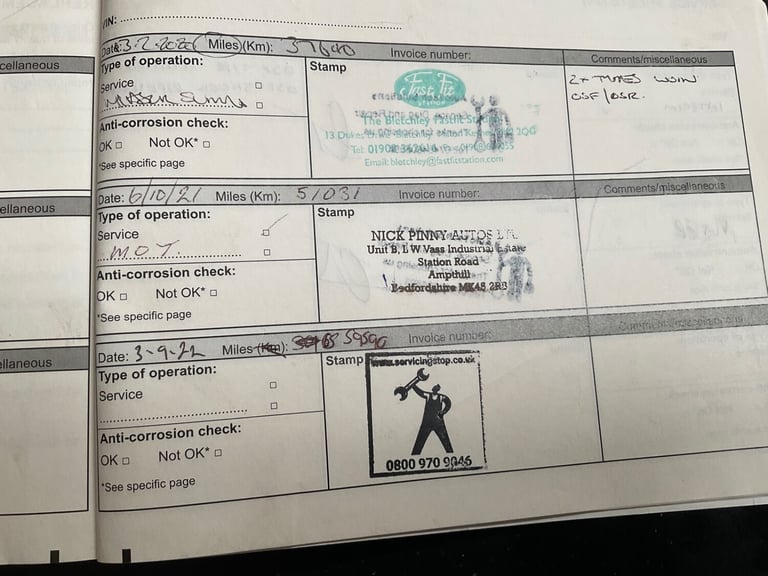 VIN:
cellaneous
Date: 3.2.2020 Miles (Km): 37640 Invoice number: Comments/miscellaneous
Type of operation:
Stamp
Service
2x TYRES
OSF/OSR.
Fast Fit
STATION
Anti-corrosion check:
The Bletchley Fastfit
OK Not OK*
13 Dukes
Tel: 01908
*See specific page
Email: bletchley@fastfitstation.com
ellaneous
Date: 6/10/21 Miles (Km): 51031 Invoice number: Comments/miscellaneous
Type of operation:
Stamp
Service
MOT
NICK PINNY AUTOS
Unit B, L W Vass Industrial Estate
Station Road
Ampthill
Bedfordshire MK45 2RB
Anti-corrosion check:
OK Not OK*
*See specific page
ellaneous
Date: 3-9-22 Miles (Km): 59590 Invoice number: Comments/miscellaneous
Type of operation:
Stamp
Service
www.servicingstop.co.uk
0800 970 9046
Anti-corrosion check:
OK Not OK*
*See specific page